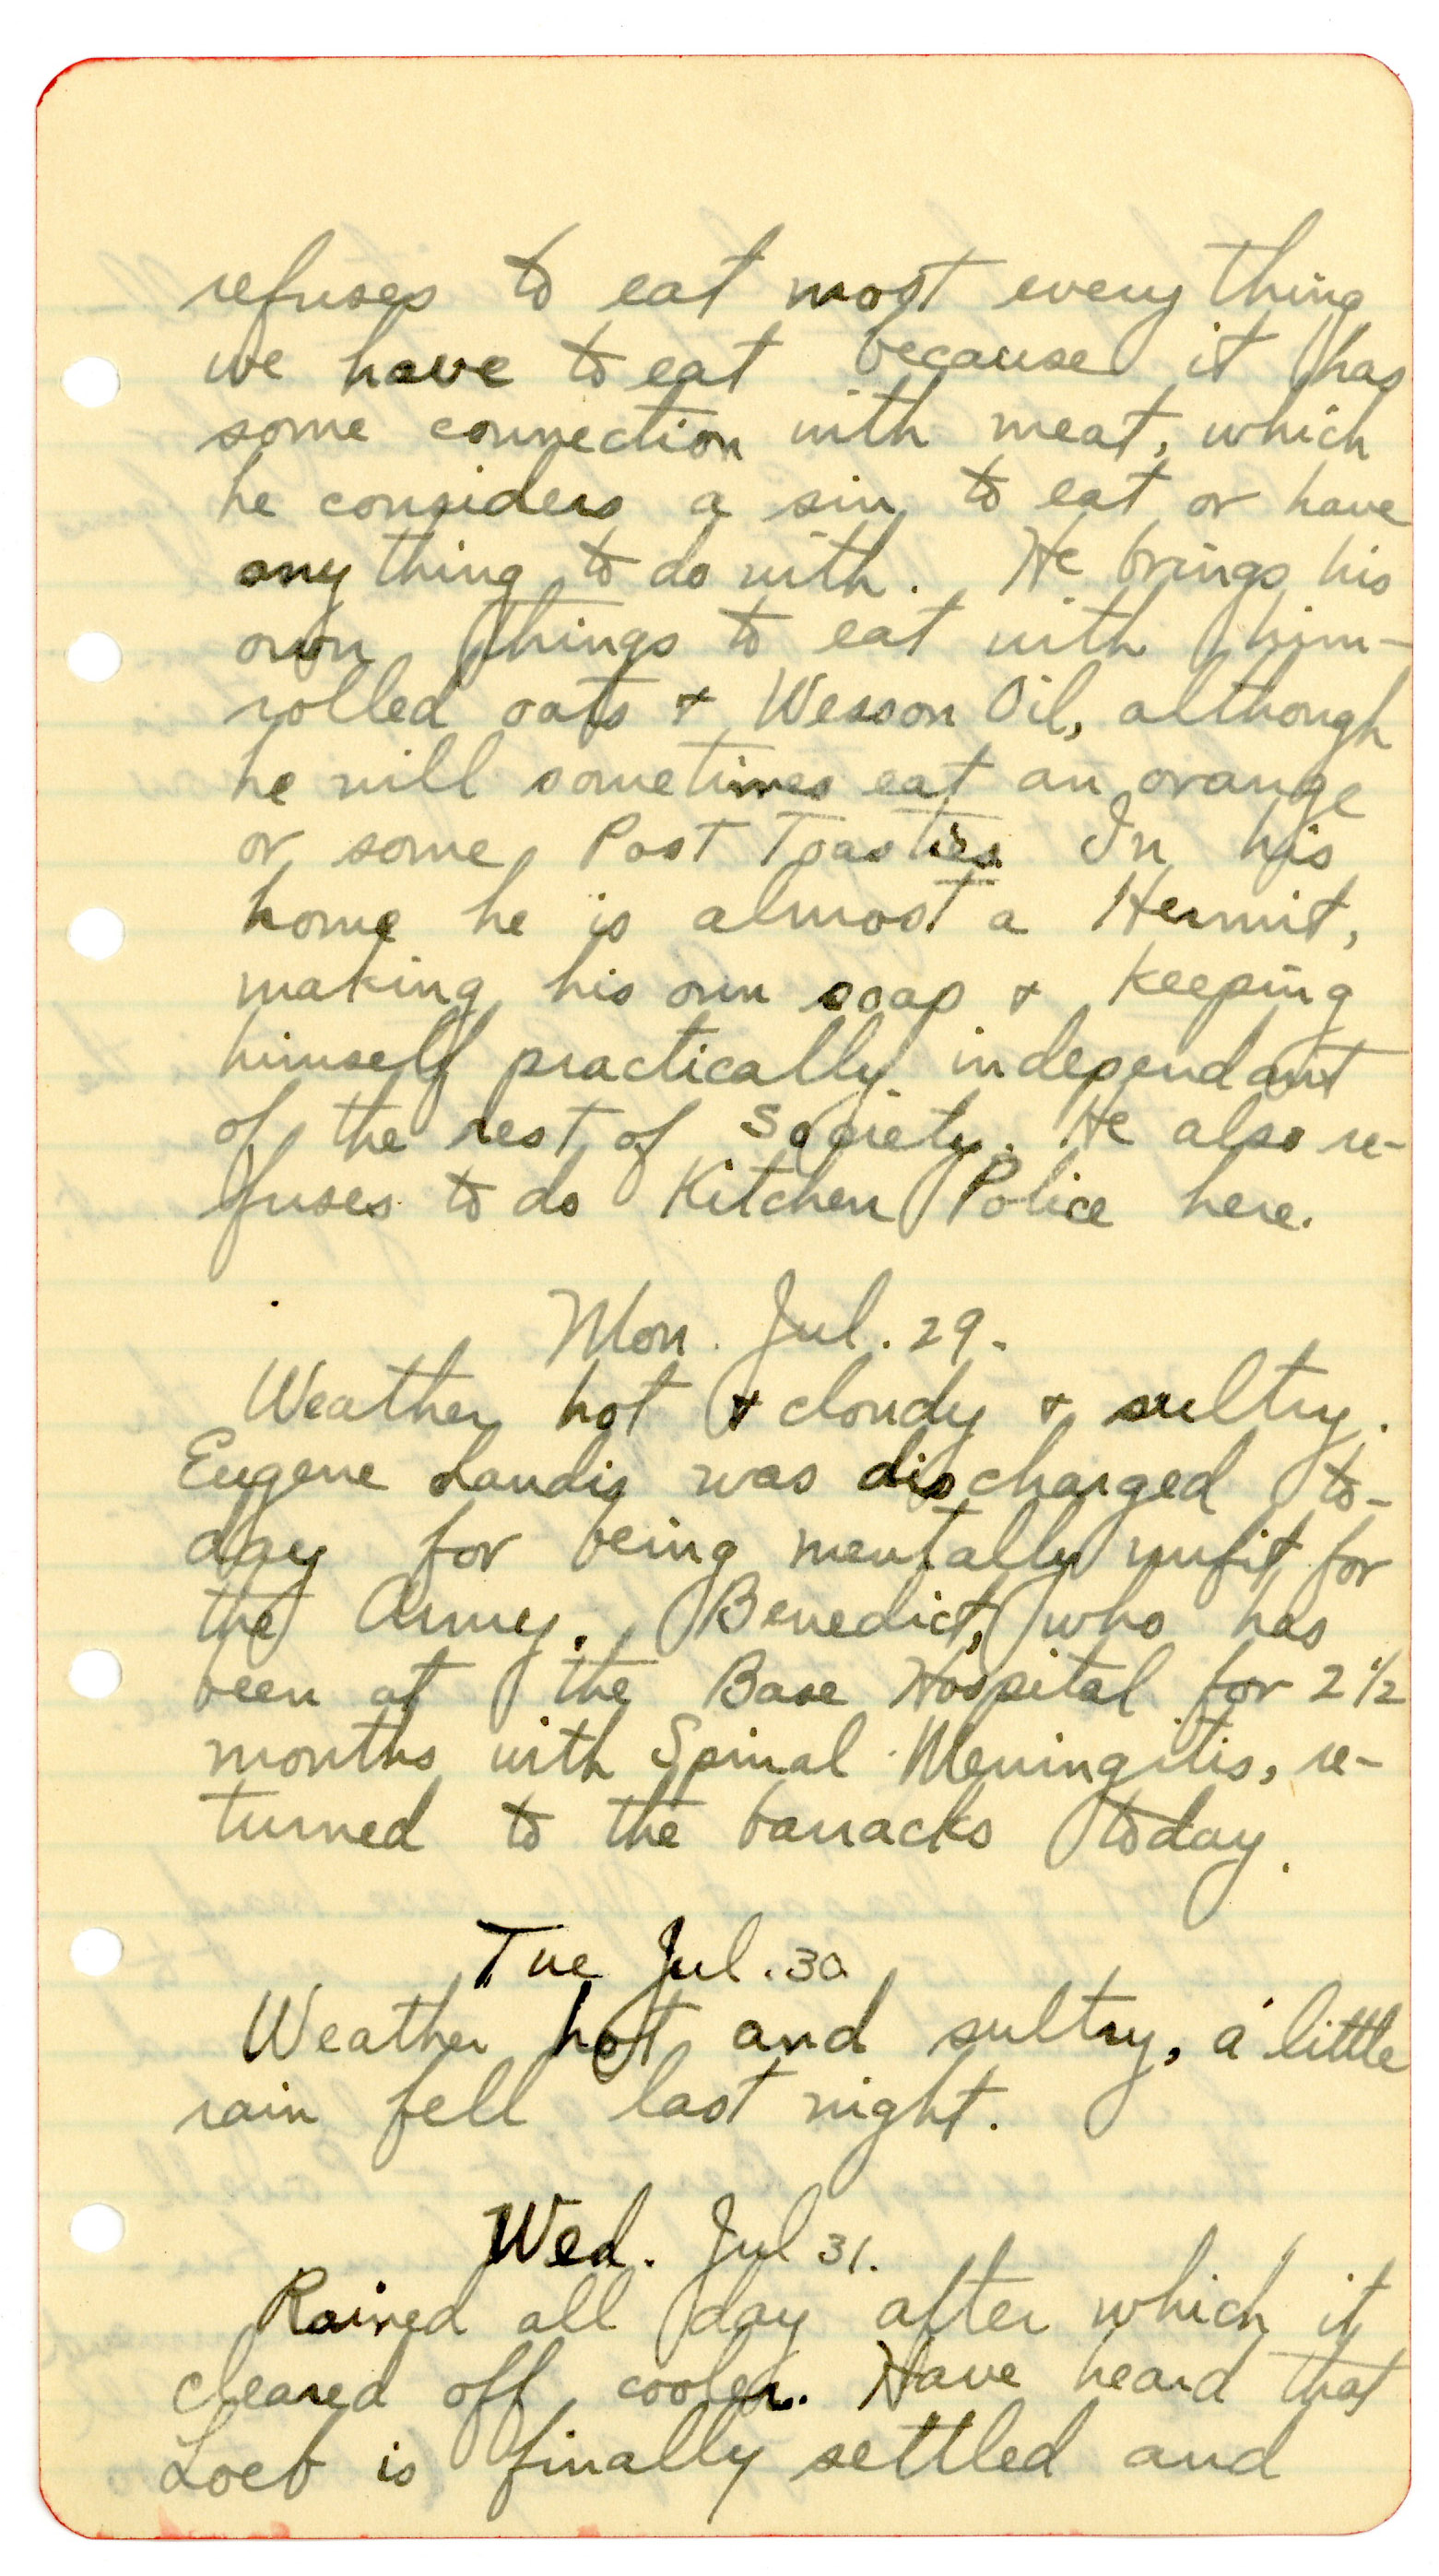 refuses to eat most every thing
we have to eat because it has
some connection with meat, which
he considers a sin to eat or have
any thing to do with. He brings his
own things to eat with him-
rolled oats & Wesson Oil, although
he will sometimes eat an orange
or some Post Toasties In his
home he is almost a Hermit,
making his own soap & keeping
himself practically independant
of the rest of Society. He also re-
fuses to do Kitchen Police here.
Mon. Jul. 29.
Weather hot & cloudy & sultry.
Eugene Landis was discharged to-
day for being mentally unfit for
the Army. Benedict, who has
been at the Base Hospital for 2 1/2
months with Spinal Meningitis, re-
turned to the barracks today.
Tue Jul. 30
Weather hot and sultry, a little
rain fell last night.
Wed. Jul 31.
Rained all day after which it
cleared off cooler. Have heard that
Loeb is finally settled and